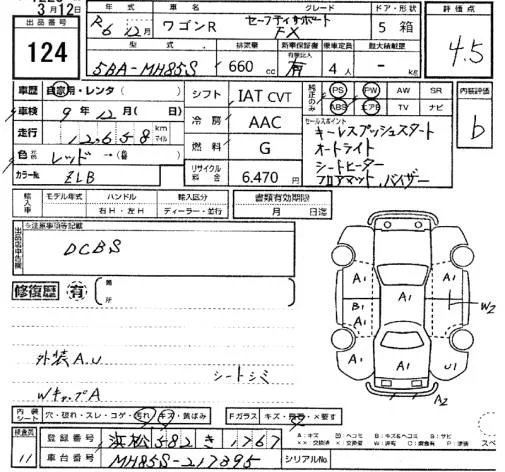 3月12日
出品番号 124
年式 R6 12月 車名 ワゴンR グレード セーフティサポート FX ドア・形状 5 箱
型式 5BA-MH85S 排気量 660 cc 新車保証書 有 乗車定員 4人 最大積載量 - kg
評価点 4.5
車歴 自家用・レンタ( )
車検 9年12月( 日)
走行 12,658 km マイル
色 レッド →( )
カラーNo. ZLB
シフト IAT CVT
冷房 AAC
燃料 G
リサイクル料金 6,470円
純正のみ PS PW AW SR
ABS エアB TV ナビ
内装評価 b
セールスポイント
キーレスプッシュスタート
オートライト
シートヒーター
フロアマット、バイザー
輸入車 モデル年式 ハンドル 右H・左H 輸入区分 ディーラー・並行
書類有効期限 月 日迄
※注意事項等記載
DCBS
修復歴 有 ( 箇所 )
外装A.U
シートシミ
WキャップA
A1 A1 A1
B1 A1 A1
A1 A1 U1
W2
A2
内装シート 穴・破れ・スレ・コゲ・汚れ・キズ・黄ばみ Fガラス キズ・要修・×要す
登録番号 浜松 582 き 1767
11 車台番号 MH85S-217395 シリアルNo.
A:キズ U:ヘコミ B:キズ&ヘコミ S:サビ
××:交換済 ×:交換要 W:波有 C:腐食有 P:塗装